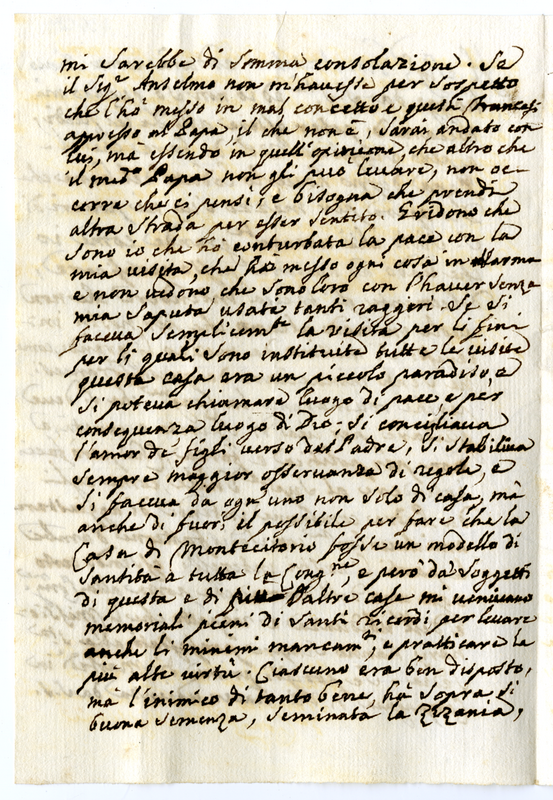 mi sarebbe di somma consolazione. Se
il Sigr. Anselmo non m'havesse per sospetto
che l'hò messo in mal concetto e questi Francesi
appresso al Papa, il che non è, sarai andato con
lui, mà essendo in quell'opinione, che altro che
il medo. Papa non gli può levare, non oc-
corre che ci pensi, e bisogna che prendi
altra strada per esser sentito. E ridono che
sono io che hò conturbata la pace con la
mia visita, che hò messo ogni cosa in alarma
e non vedono, che sono loro con l'haver senza
mia saputa usati tanti raggeri. Se si
faceva semplicemte. la visita per li fini
per li quali sono instituite tutte le visite
questa casa era un piccolo paradiso, e
si poteva chiamare luogo di pace, e per
conseguenza luogo di Dio; si conciliava
l'amor de figli verso del Padre, si stabiliva
sempre maggior osservanza di regole, e
si faceva da ogn'uno non solo di casa, mà
anche di fuori il possibile per fare che la
Casa di Montecitorio fosse un modello di
santità à tutta la Congne., e però dà soggetti
di questa e di l'altre case mi venivano
memoriali pieni di santi ricordi per levare
anche li minimi mancamti., e pratticare le
più alte virtù. Ciascuno era ben disposto,
mà l'inimico di tanto bene, hà sopra sì
buona semenza, seminata la zizania,